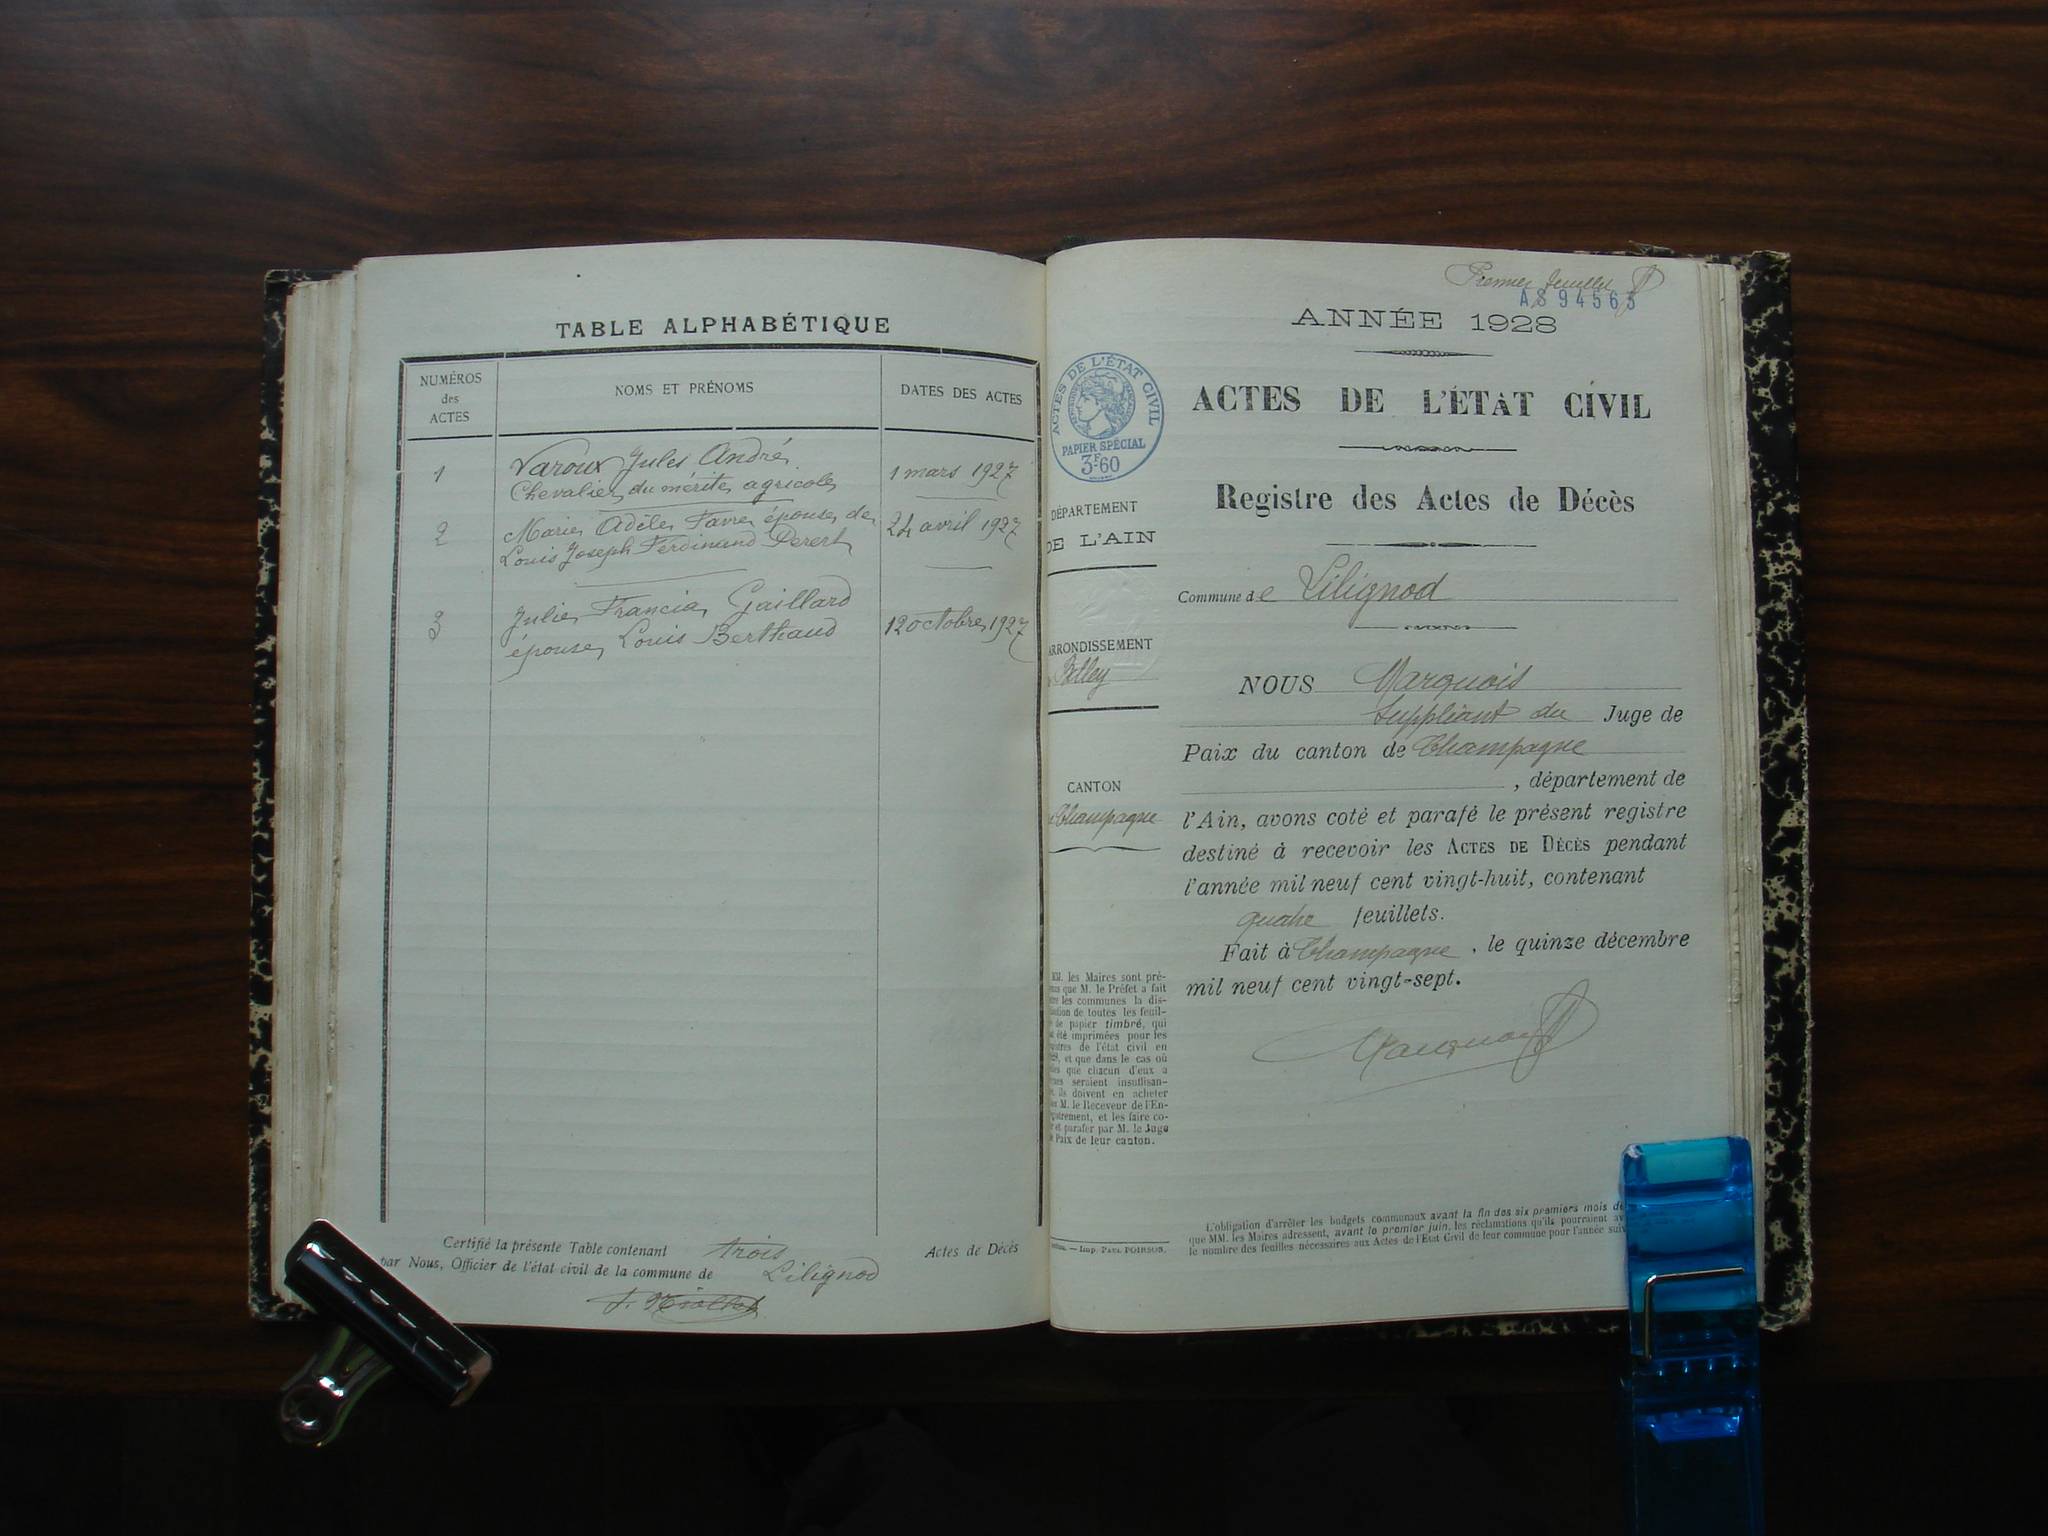 TABLE ALPHABÉTIQUE
NUMÉROS
des
ACTES
NOMS ET PRÉNOMS
DATES DES ACTES
1
Varoux Jules André
Chevalier du mérite agricole
1 mars 1927
2
Marie Adèle Favre épouse de
Louis Joseph Ferdinand
24 avril 1927
3
Julie Francia Gaillard
épouse Louis Berthaud
12 octobre 1927
Certifié la présente Table contenant trois Actes de Décès
par Nous, Officier de l'état civil de la commune de Lilignod
Premier feuillet
AS 94563
ANNÉE 1928
ACTES DE L'ÉTAT CIVIL
PAPIER SPÉCIAL
3F60
ACTES DE L'ÉTAT CIVIL
Registre des Actes de Décès
DÉPARTEMENT
DE L'AIN
Commune de Lilignod
ARRONDISSEMENT
Belley
CANTON
Champagne
NOUS Marquois
Suppléant du Juge de
Paix du canton de Champagne
, département de
l'Ain, avons coté et parafé le présent registre
destiné à recevoir les ACTES DE DÉCÈS pendant
l'année mil neuf cent vingt-huit, contenant
quatre feuillets.
Fait à Champagne, le quinze décembre
mil neuf cent vingt-sept.
Marquois
MM. les Maires sont pré-
que M. le Préfet a fait
les communes la dis-
de toutes les feuil-
de papier timbré, qui
été imprimées pour les
de l'état civil en
et que dans le cas où
que chacun d'eux a
seraient insuffisan-
ils doivent en acheter
M. le Receveur de l'En-
et les faire co-
et parafer par M. le Juge
Paix de leur canton.
— Imp. PAUL POIRSON.
L'obligation d'arrêter les budgets communaux avant la fin des six premiers mois
que MM. les Maires adressent, avant le premier juin, les réclamations qu'ils pourraient
le nombre des feuilles nécessaires aux Actes de l'État Civil de leur commune pour l'année